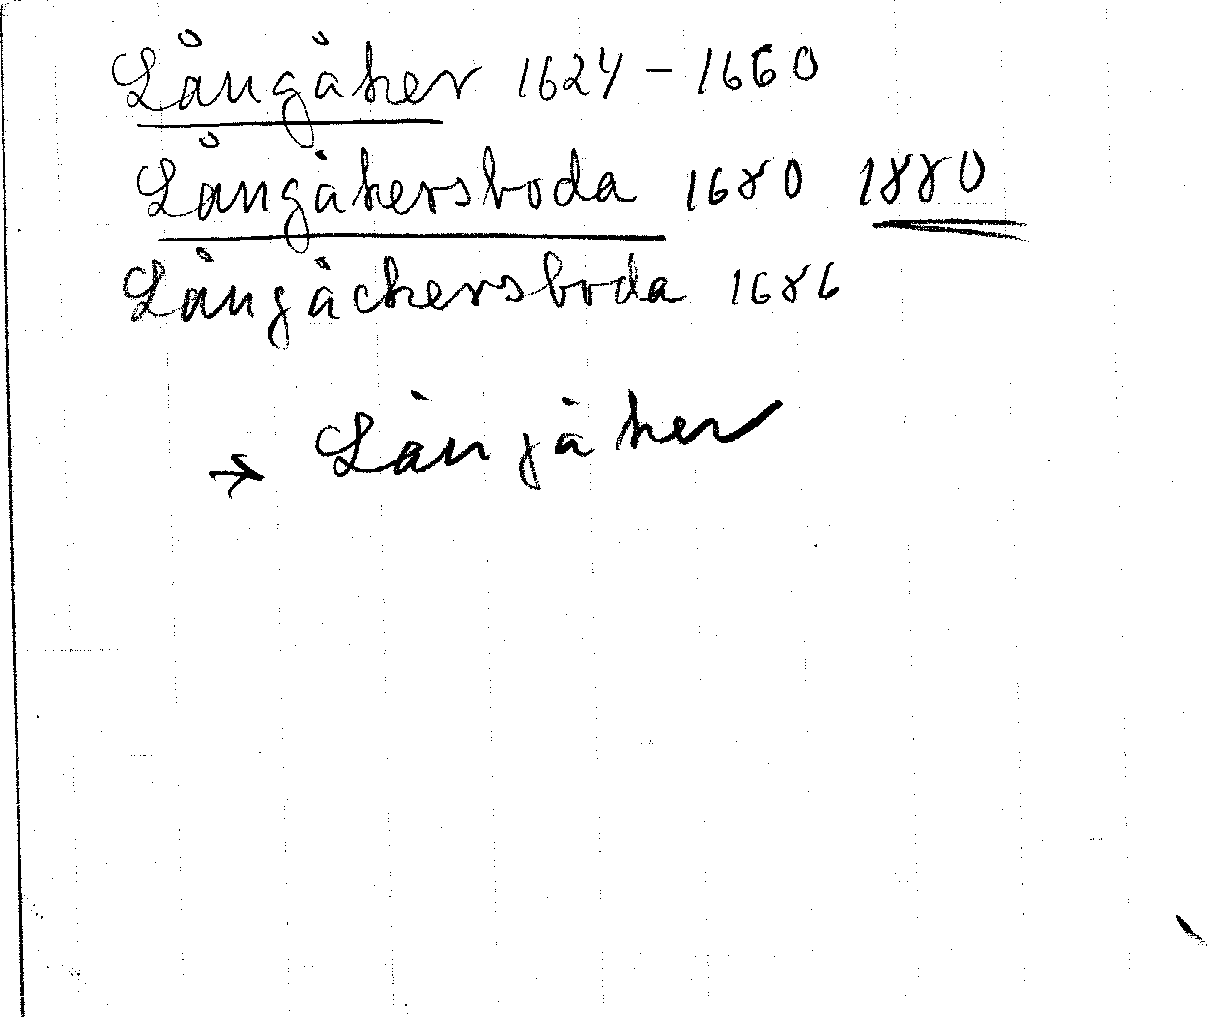 Långåker 1624 – 1660
Långåkersboda 1680 1880
Långåckersboda 1686
→ Långåker